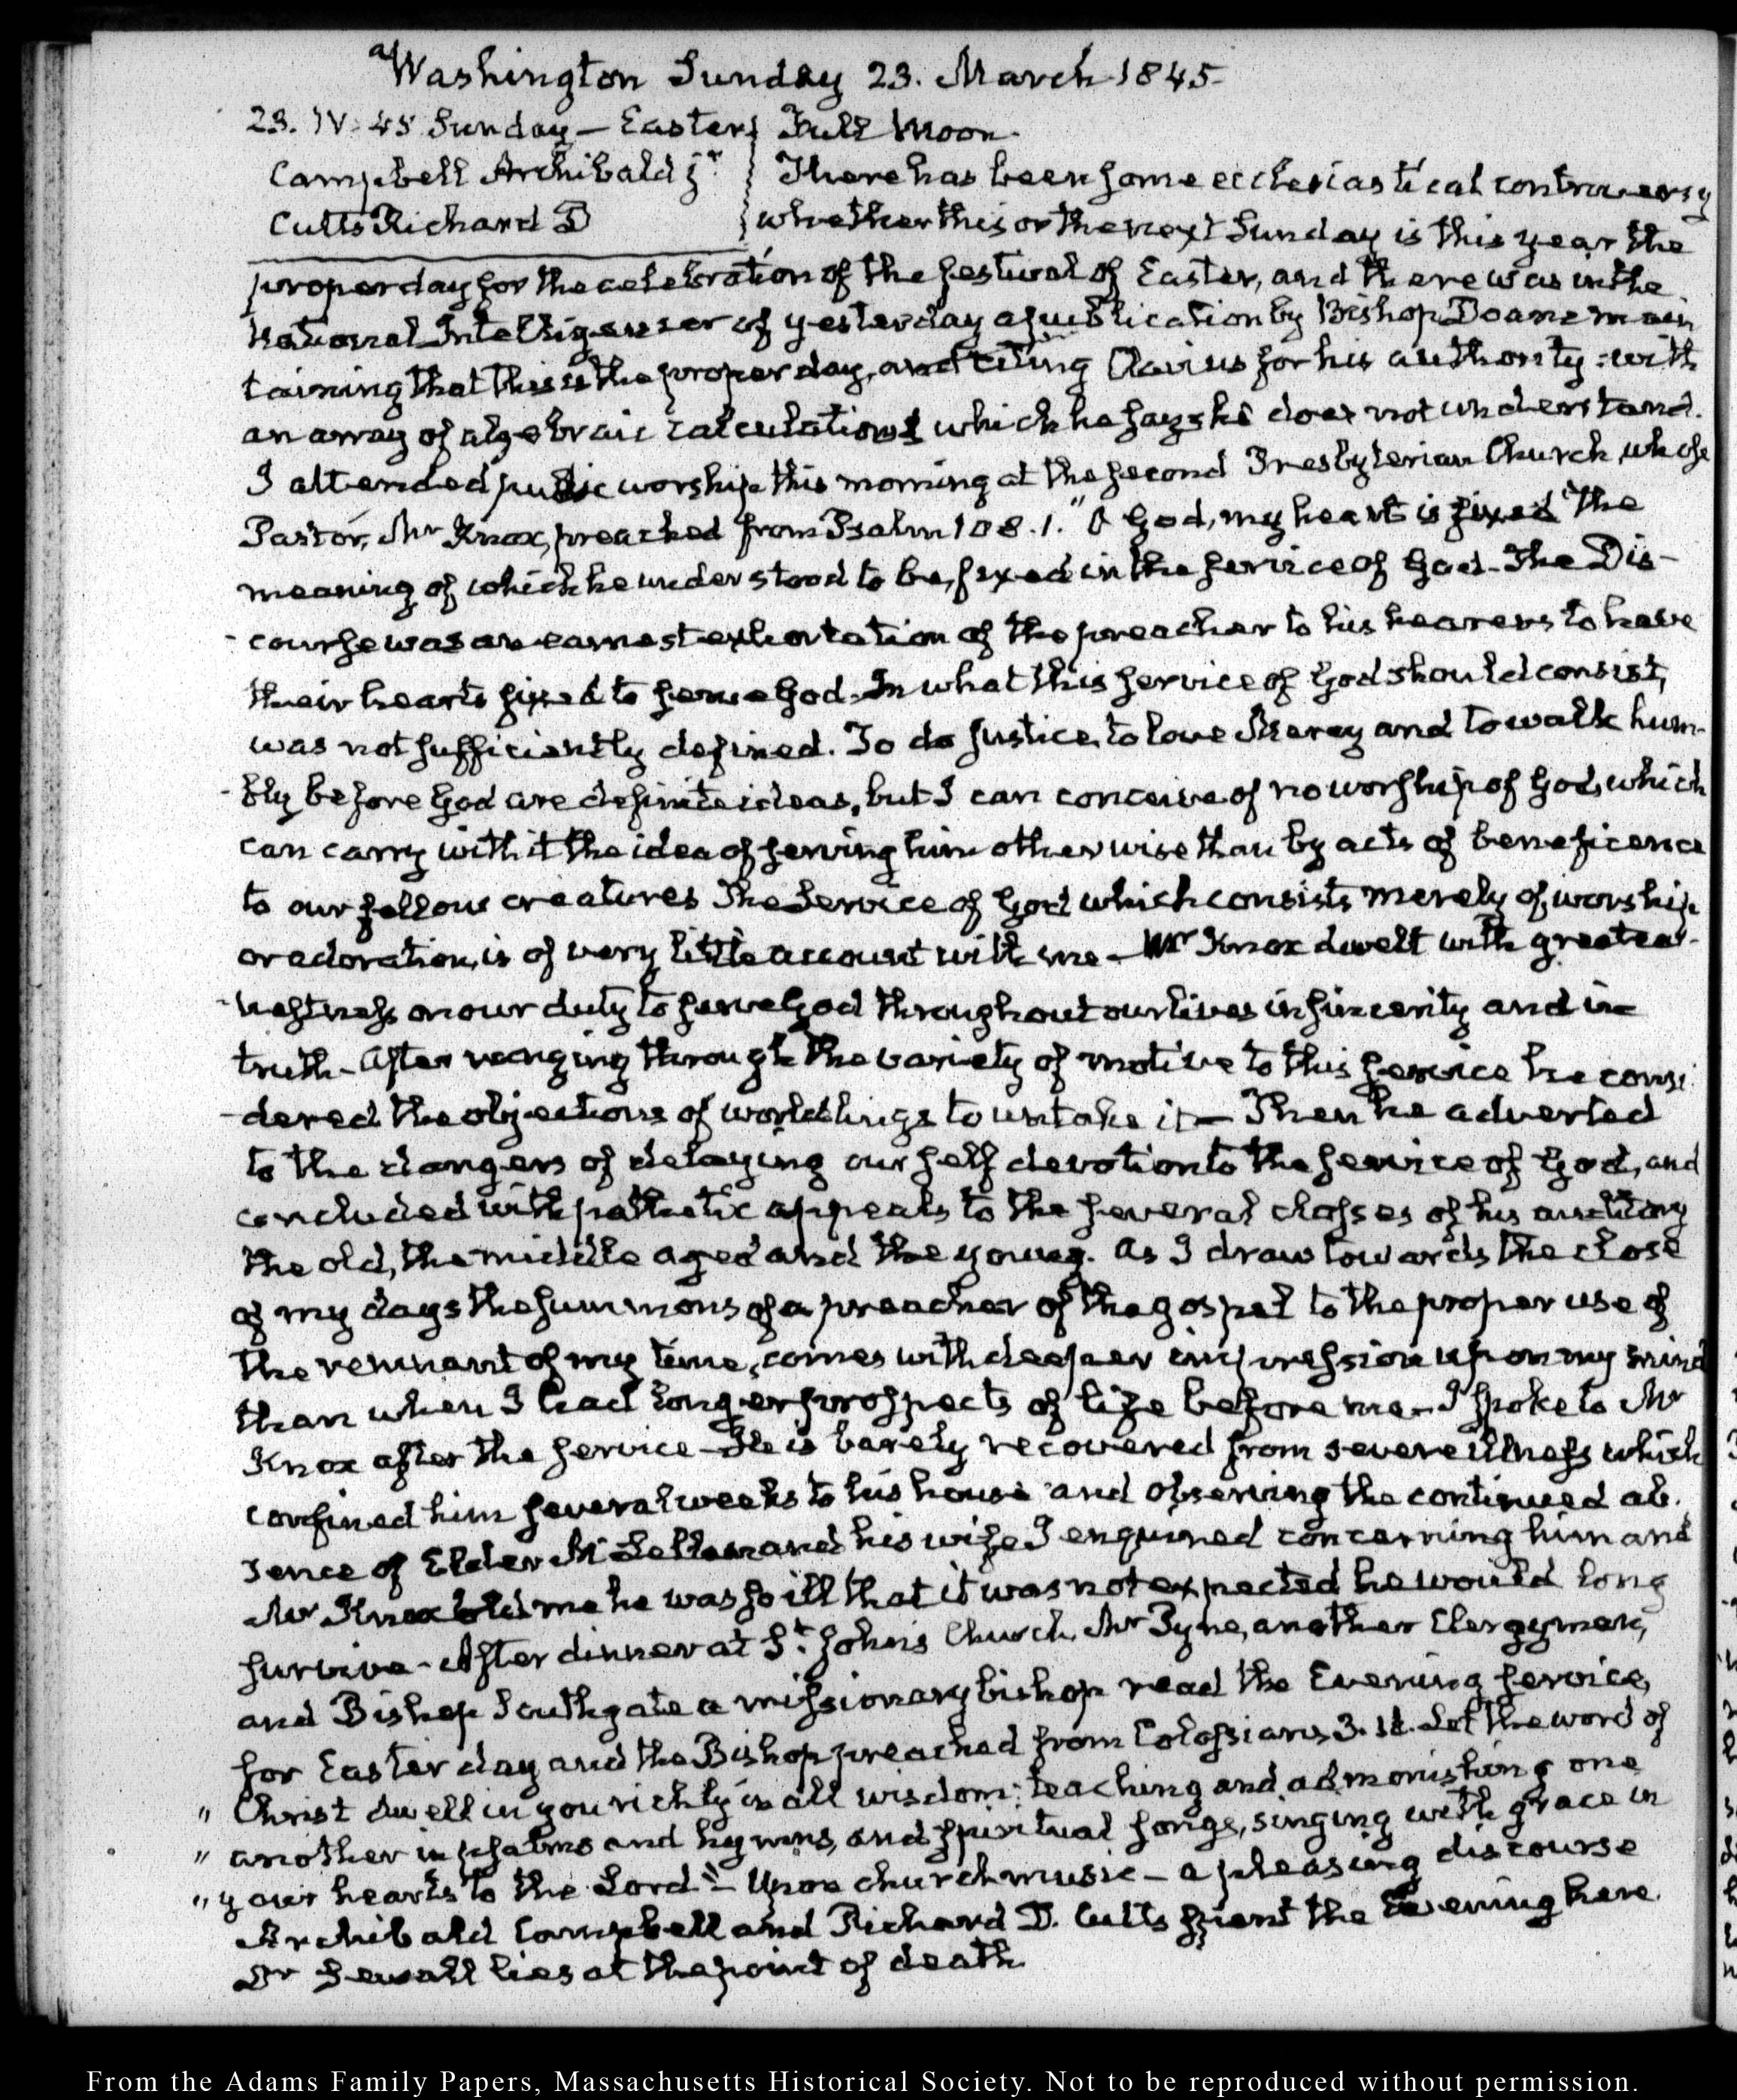 a Washington Sunday 23. March 1845
23. IV: 45 Sunday — Easter Full Moon.
Campbell Archibald jr There has been some ecclesiastical controversy
Cutts Richard D whether this or the next Sunday is this year the
proper day for the celebration of the festival of Easter, and there was in the
National Intelligencer of yesterday a publication by Bishop Doane main
taining that this is the proper day, and citing Clavius for his authority: with
an array of algebraic calculations which he says he does not understand.
I attended public worship this morning at the second Presbyterian Church, whose
Pastor, Mr Knox, preached from Psalm 108. 1. "O God, my heart is fixed" The
meaning of which he understood to be, fixed in the service of God. The Dis-
-course was an earnest exhortation of the preacher to his hearers to have
their hearts fixed to serve God. In what this service of God should consist,
was not sufficiently defined. To do justice, to love Mercy and to walk hum-
-bly before God are definite ideas, but I can conceive of no worship of God, which
can carry with it the idea of serving him otherwise than by acts of beneficence
to our fellow creatures The Service of God which consists merely of worship
or adoration, is of very little account with me — Mr Knox dwelt with great ear-
-nestness on our duty to serve God throughout our lives in sincerity and in
truth — After ranging through the variety of motive to this service he consi
-dered the objections of worldlings to untake it — Then he adverted
to the dangers of delaying our self devotion to the service of God, and
concluded with pathetic appeals to the several classes of his auditory
the old, the middle aged and the young. As I draw towards the close
of my days the summons of a preacher of the gospel to the proper use of
the remnant of my time, comes with deeper impression upon my mind
than when I had longer prospects of life before me — I spoke to Mr
Knox after the service — He is barely recovered from severe illness which
confined him several weeks to his house and observing the continued ab.
sence of Elder and his wife I enquired concerning him and
Mr Knox told me he was so ill that it was not expected he would long
survive — After dinner at St. John's Church, Mr Pyne, another Clergyman,
and Bishop Southgate a missionary bishop read the Evening service,
for Easter day and the Bishop preached from Colossians 3. 16. Let the word of
" Christ dwell in you richly in all wisdom; teaching and admonishing one
" another in psalms and hymns, and spiritual songs, singing with grace in
" your hearts to the Lord" — Upon church music — a pleasing discourse
Archibald Campbell and Richard D. Cutts spent the Evening here.
Dr Sewall lies at the point of death.
From the Adams Family Papers, Massachusetts Historical Society. Not to be reproduced without permission.